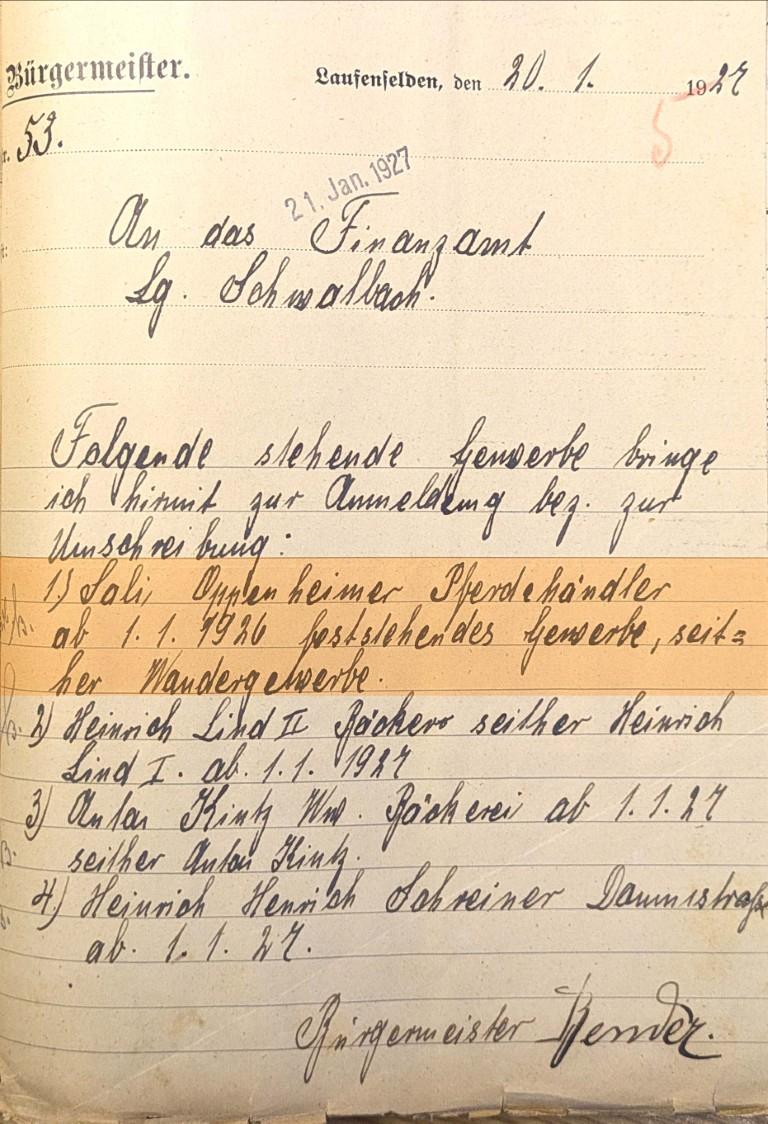 Bürgermeister.
Laufenselden, den 20. 1. 1927
53.
5
21. Jan. 1927
An das Finanzamt
Lg. Schwalbach.
Folgende stehende Gewerbe bringe
ich hirmit zur Anmeldung bez. zur
Umschreibung:
1.) Sali Oppenheimer Pferdehändler
ab 1. 1. 1926 feststehendes Gewerbe, seit=
her Wandergewerbe.
2) Heinrich Lind II Bäckere seither Heinrich
Lind I. ab. 1. 1. 1927
3) Anton Kintz Ww. Bäckerei ab 1. 1. 27
seither Anton Kintz.
4.) Heinrich Henrich Schreiner
ab. 1. 1. 27.
Bürgermeister Bender.